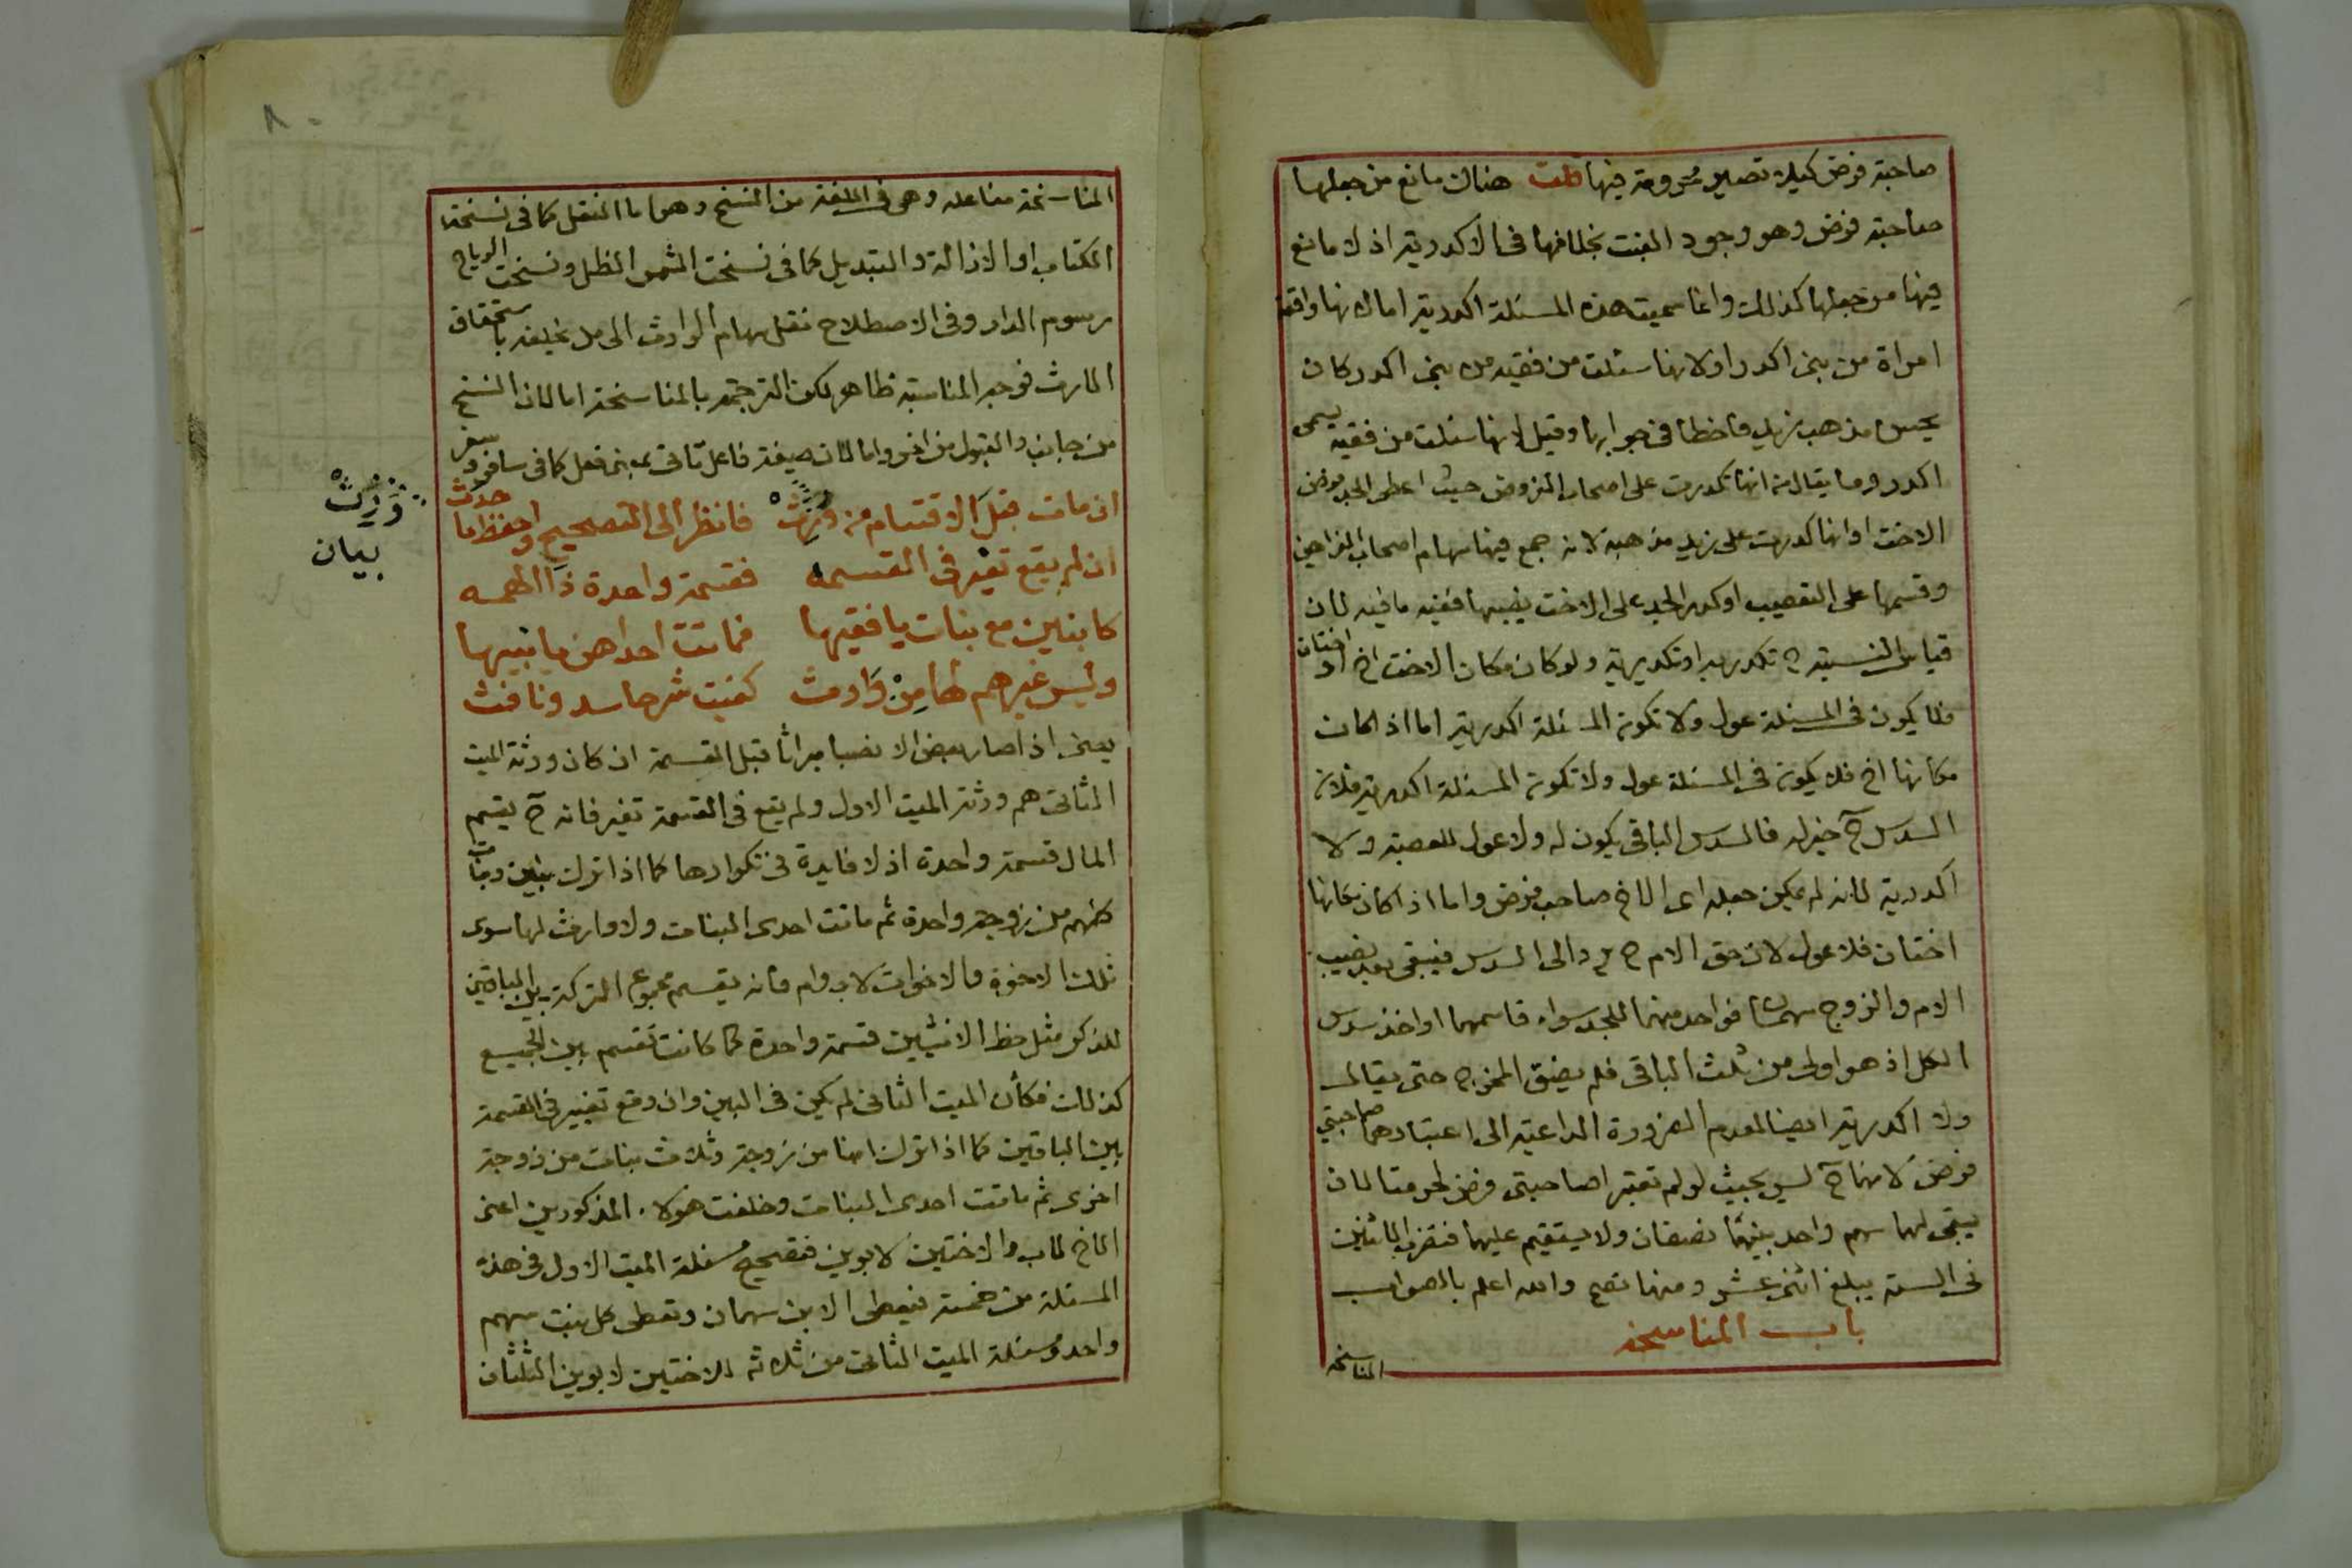 صاحبة فرض كيلا تصير محرومة فيها قلت هناك مانع من جعلها
صاحبة فرض وهو وجود البنت بخلافها في الاكدرية اذ لا مانع
فيها من جعلها كذلك وانما سميت هذه المسئلة اكدرية اما لانها واقعة
امراة من بني اكدر او لانها سئلت من فقيه من بني اكدر كان
يحسن مذهب زيد فاخطا في جوابها وقيل لانها سئلت من فقيه يسمى
اكدر وما يقال من انها تكدرت على اصحاب الفروض حيث اعطى الجد فرض
الاخت او انها كدرت على زيد مذهبه لانه جمع فيها سهام اصحاب الفرائض
وقسمها على التعصيب او كدر الجد على الاخت نصيبها ففيه ما فيه لان
قياس النسبة ح تكدرية او تكديرية ولو كان مكان الاخت اخ او اختان
فلا يكون في المسئلة عول ولا تكون المسئلة اكدرية اما اذا كان
مكانها اخ فلا يكون في المسئلة عول ولا تكون المسئلة اكدرية فلان
السدس ح خير له فالسدس الباقي يكون له ولا عول للعصبة ولا
اكدرية لانه لم يمكن جعله اي الاخ صاحب فرض واما اذا كان مكانها
اختان فلا عول لان حق الام ح يرد الى السدس فيبقى بعد نصيب
الام والزوج سهمان فواحد منهما للجد سواء قاسمهما او اخذ سدس
الكل اذ هو اولى من ثلث الباقي فلم يضق المخرج حتى يقال
ولا اكدرية ايضا لعدم الضرورة الداعية الى اعتبارهما صاحبتي
فرض لانهما ح ليس بحيث لو لم تعتبرا صاحبتي فرض لحرمتا لان
يبقى لهما سهم واحد بينهما نصفان ولا يستقيم عليهما فتضرب الاثنين
في الستة يبلغ اثني عشر ومنها تصح والله اعلم بالصواب
باب المناسخة
المناسخة
المناسخة مفاعلة وهي في اللغة من النسخ وهو اما النقل كما في نسخة
الكتاب او الازالة والتبديل كما في نسخت الشمس الظل ونسخت الرياح
رسوم الدار وفي الاصطلاح نقل سهام الوارث الى من يخلفه باستحقاق
الارث فوجه المناسبة ظاهر لكن الترجمة بالمناسخة اما لان النسخ
من جانب والقبول من اخر واما لان صيغة فاعل تاتي بمعنى فعل كما في سافر وسفر
ان مات قبل الاقتسام من ورث فانظر الى التصحيح واحفظ ما حدث
ان لم يقع تغير في القسمه فقسمة واحدة ذا الهمه
كابنين مع بنات يا فقيها فماتت احداهن يا نبيها
وليس غيرهم لها من وارث كفيت شر حاسد ونافث
ورث
بيان
يعني اذا صار بعض الانصبا ميراثا قبل القسمة ان كان ورثة الميت
الثاني هم ورثة الميت الاول ولم يقع في القسمة تغير فانه ح يقسم
المال قسمة واحدة اذ لا فايدة في تكرارها كما اذا ترك بنين وبنات
كلهم من زوجة واحدة ثم ماتت احدى البنات ولا وارث لها سوى
تلك الاخوة والاخوات لاب وام فانه يقسم مجموع التركة بين الباقين
للذكر مثل حظ الانثيين قسمة واحدة كما كانت تقسم بين الجميع
كذلك فكأن الميت الثاني لم يكن في البين وان وقع تغيير في القسمة
بين الباقين كما اذا ترك ابنا من زوجة وثلاث بنات من زوجة
اخرى ثم ماتت احدى البنات وخلفت هولاء المذكورين اعني
الاخ لاب والاختين لابوين فتصحيح مسئلة الميت الاول في هذه
المسئلة من خمسة فيعطى الابن سهمان وتعطى كل بنت سهم
واحد ومسئلة الميت الثاني من ثلاثة للاختين لابوين الثلثان
٨٠